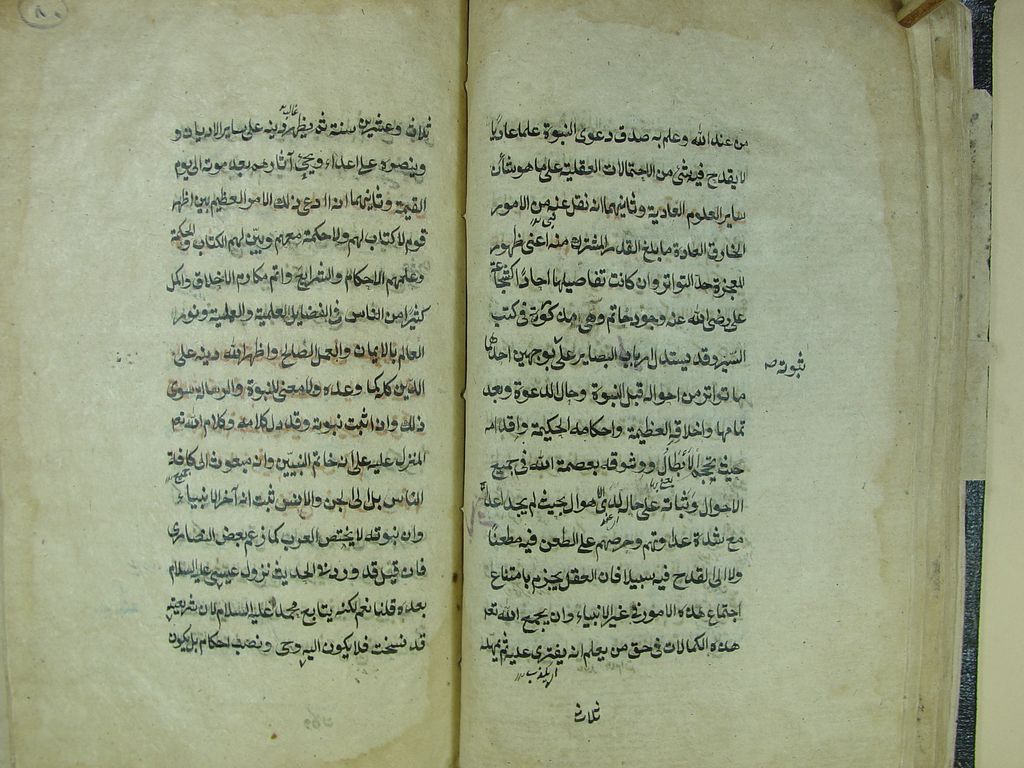 من عند الله وعلم به صدق دعوى النبوة علما عاديا
لا يقدح فيه شئ من الاحتمالات العقلية على ما هو شان
ساير العلوم العادية وثانيهما انه نقل عنه من الامور
الخارق العادة ما بلغ القدر المشترك منه اعنى ظهور
المعجزة حد التواتر وان كانت تفاصيلها احادا كشجاعة
على رضى الله عنه وجود حاتم وهى مذكورة فى كتب
السير وقد يستدل ارباب البصاير على بوجهين احدهما
نبوته صح
ما تواتر من احواله قبل النبوة وحال الدعوة وبعد
تمامها واخلاقه العظيمة واحكامه الحكيمة واقدامه
حيث تحجم الابطال ووثوقه بعصمة الله فى جميع
الاحوال وثباته على حاله لدى الاهوال بحيث لم يجد اعداؤه
مع شدة عداوتهم وحرصهم على الطعن فيه مطعنا
ولا الى القدح فيه سبيلا فان العقل يجزم بامتناع
اجتماع هذه الامور فى غير الانبياء وان يجمع الله تعم
هذه الكمالات فى حق من يعلم انه يفترى عليه ثم يمهله
اى يكذب
ثلاثا
٨٠
ثلاثا وعشرين سنة ثم يظهر دينه على ساير الاديان و
غالب
وينصره على اعداءه ويحيى آثارهم بعد موته الى يوم
القيمة وثانيهما انه ادعى ذلك الامر العظيم بين اظهر
قوم لا كتاب لهم ولا حكمة معهم وبين لهم الكتاب والحكمة
وعلمهم الاحكام والشرايع واتم مكارم الاخلاق واكمل
كثيرا من الناس فى الفضايل العلمية والعملية ونور
العالم بالايمان والعمل الصالح واظهر الله دينه على
الدين كله كما وعده ولا معنى للنبوة والرسالة سوى
ذلك وان اثبت نبوته وقد دل كلامه وكلام الله تعم
المنزل عليه على انه خاتم النبيين وانه مبعوث الى كافة
الناس بل الى الجن والانس ثبت انه آخر الانبياء
وان نبوته لا يختص العرب كما زعم بعض النصارى
فان قيل قد ورد فى الحديث نزول عيسى عليه السلام
بعده قلنا نعم لكنه يتابع محمدا عليه السلام لان شريعته
قد نسخت فلا يكون اليه وحى ونصب احكام بل يكون